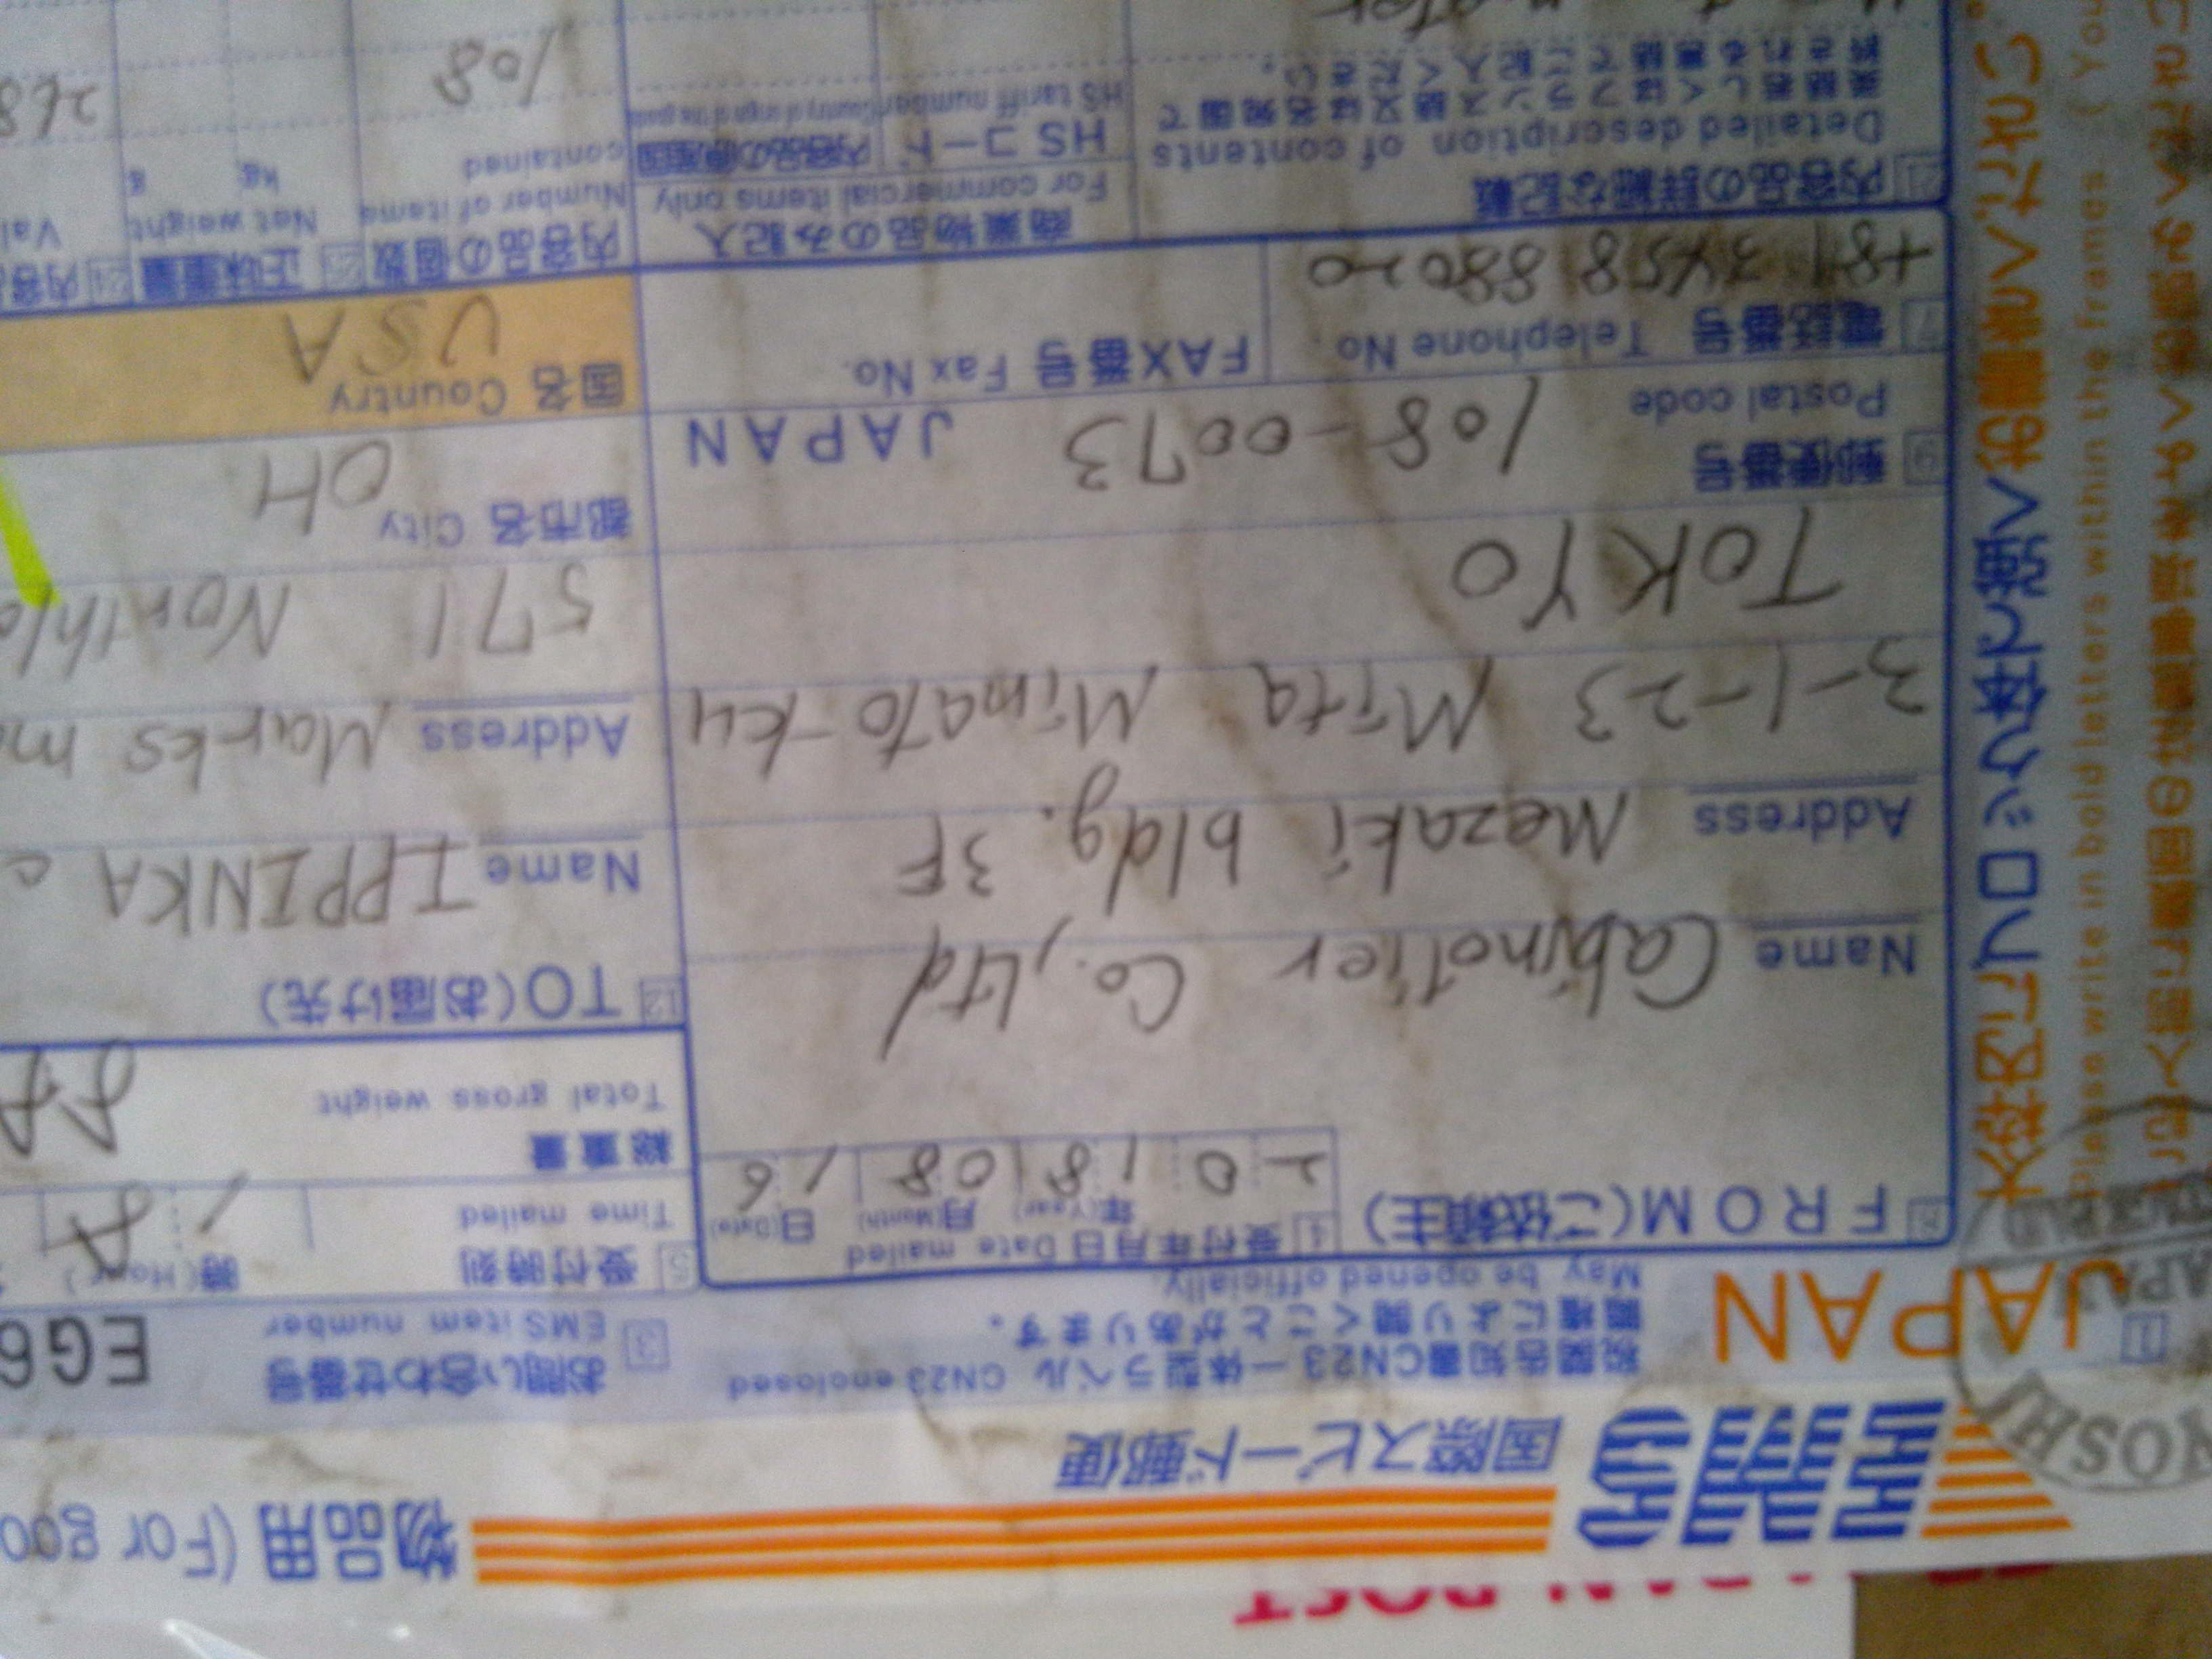 物品用 (For goo
EMS 国際スピード郵便
JAPAN
税関告知書CN23 一体型ラベル CN23 enclosed
税関により開くことがあります。
May be opened officially.
3 お問い合わせ番号
EMS item number
EG6
6 FROM(ご依頼主)
4 受付年月日 Date mailed
年(Year) 月(Month) 日(Date)
2018 08 16
5 受付時刻
Time mailed
総重量
Total gross weight
Name Cabinotier Co., Ltd
Address Mezaki bldg. 3F
3-1-23 Mita Minato-ku
TOKYO
9 郵便番号
Postal code 108-0073 JAPAN
7 電話番号 Telephone No.
+81 3458 88020
FAX番号 Fax No.
12 TO(お届け先)
Name IPPINKA c
Address Marks m
571 Northla
都市名 City OH
国名 Country USA
21 内容品の詳細な記載
Detailed description of contents
英語若しくはフランス語又は名宛国で
許される言語でご記入ください。
商業物品のみ記入
For commercial items only
HSコード
HS tariff number
内容品の原産国
Country of origin of the goods
内容品の個数
Number of items
contained
108
正味重量
Net weight
kg g
24 内容品
Val
268
Please write in bold letters within the frames. (You